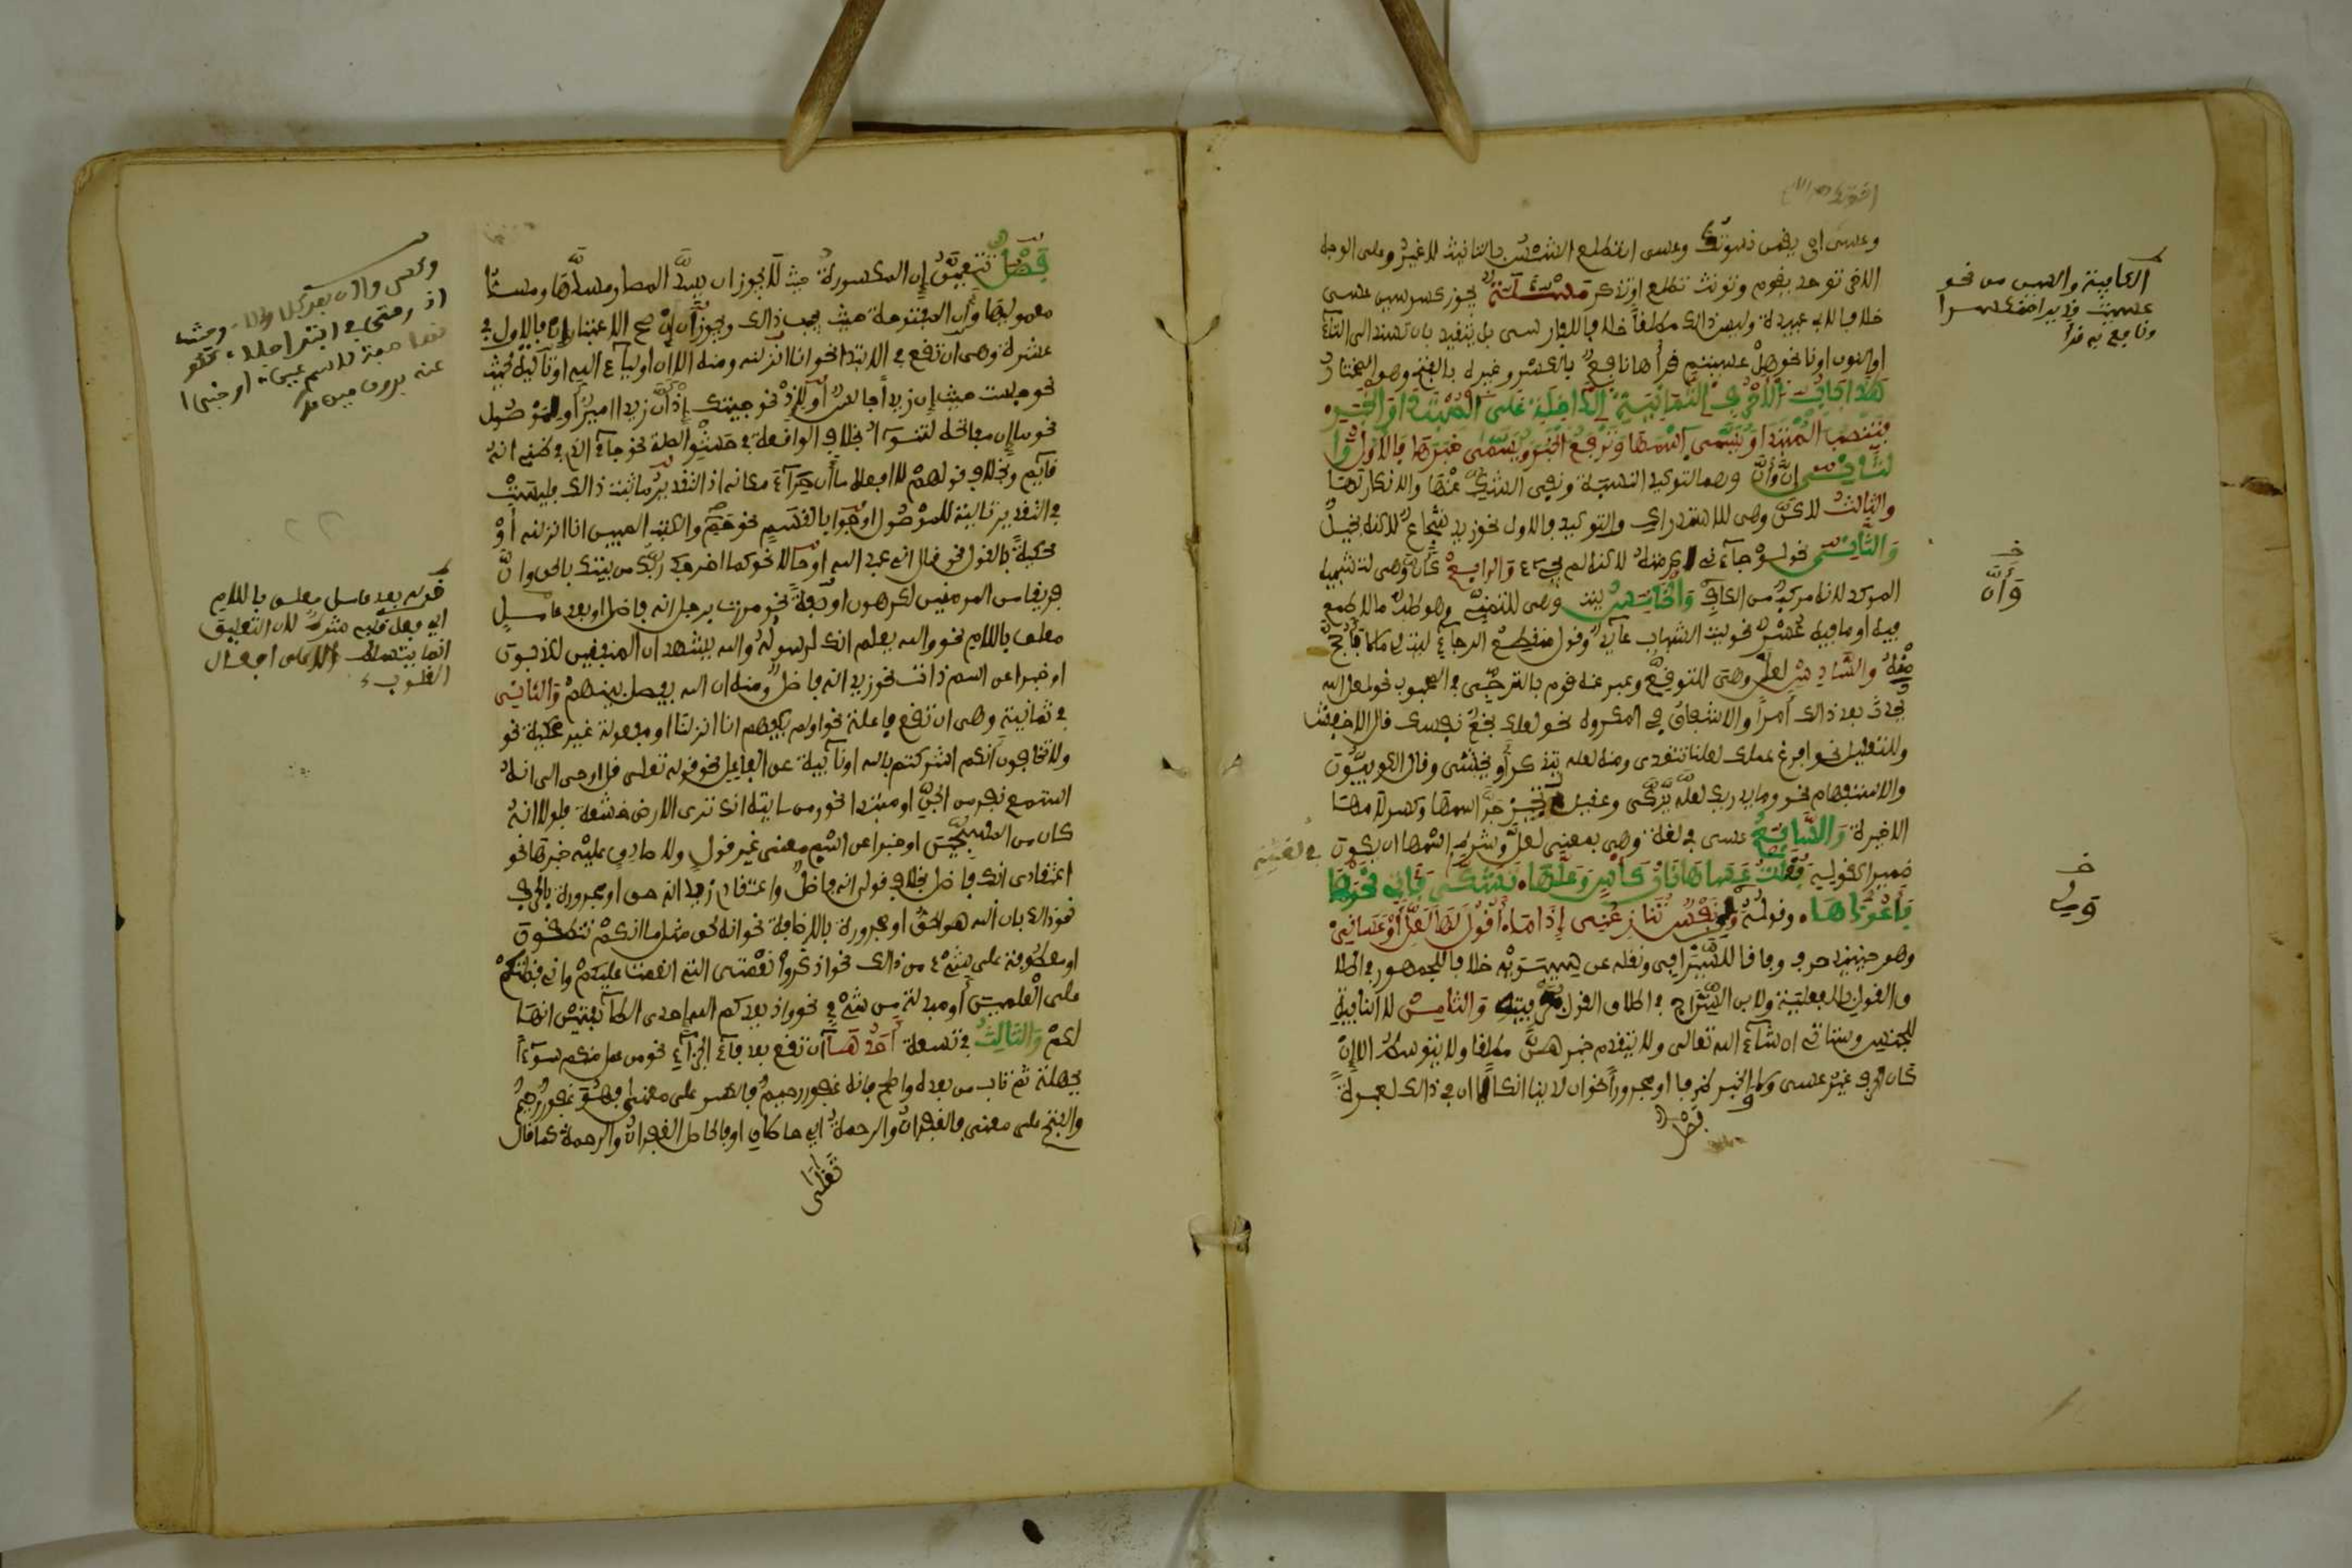 وعسى ان يقمن نسوتك وعسى ان تطلع الشمس بالتانيث لا غير وعلى الوجه
الاخر توحد يقوم وتونث تطلع او تذكر مسئلة يجوز كسر سين عسى
خلافا لابي عبيدة وليس ذالك مطلقا خلافا للفارسي بل يتقيد بان تسند الى التاء
او النون او نا نحو هل عسيتم قرأها نافع بالكسر وغيره بالفتح وهو المختار
هذا باب الاحرف الثمانية الداخلة على المبتدا والخبر
فتنصب المبتدا ويسمى اسمها وترفع الخبر ويسمى خبرها فالاول وا
لثاني إنّ وأنّ وهما لتوكيد النسبة ونفي الشك عنها والانكار لها
والثالث لاكن وهى للاستدراك والتوكيد فالاول نحو زيد شجاع لاكنه بخيل
والثاني نحو لو جاءني اكرمته لاكنه لم يجئ والرابع كأن وهى للتشبيه
الموكد لانه مركب من الكاف وأن والخامس ليت وهى للتمني وهو طلب ما لا طمع
فيه او ما فيه عسر نحو ليت الشباب عائد وقول منقطع الرجاء ليت لي مالا فأحج
منه والسادس لعل وهى للتوقع وعبر عنه قوم بالترجي في المحبوب نحو لعل الله
يحدث بعد ذالك أمرا والاشفاق في المكروه نحو لعلك بخع نفسك قال الاخفش
وللتعليل نحو افرغ عملك لعلنا نتغدى ومنه لعله يتذكر أو يخشى وقال الكوفيون
والاستفهام نحو وما يدريك لعله يزكى وعقيل تجيز جر اسمها وكسر لامها
الاخيرة والسابع عسى في لغية وهى بمعنى لعل وشرط اسمها ان يكون
ضميرا كقوليه فقلت عساها نار كأس وعلها تشكى فآتي نحوها
فأعودها وقوله ولي نفس تنازعني إذا ما أقول لها لعلي أو عساني
وهو حينئذ حرف وفاقا للسيرافي ونقله عن سيبويه خلافا للجمهور في اطلا
ق القول بفعليته ولابن السراج في اطلاق القول بحرفيته والثامن لا النافية
للجنس وستاتي ان شاء الله تعالى ولا يتقدم خبرهن مطلقا ولا يتوسط الا إن
كان الحرف غير عسى ولا والخبر ظرفا او مجرورا نحو ان لدينا انكالا ان في ذالك لعبرة
فصل
في لغية
الكافية والسين من نحو
عسيت قد يراضة كسرا
ونافع به قرأ
خـ
وأنّ
خـ
وفي
فصل تتعين إن المكسورة حيث لا يجوز ان يسد المصدر مسدها ومسد
معموليها وأن المفتوحة حيث يجب ذالك ويجوز أن وإن ان صح الاعتباران فالاول في
عشرة وهى ان تقع في الابتدا نحو انا انزلنه ومنه الا ان اولياء الله او تالية لحيث
نحو جلست حيث إن زيدا جالس أو لإذ نحو جيتك إذ إن زيدا امير أو لموصول
نحو ما إن مفاتحه لتنوأ بخلاف الواقعة في حشو الصلة نحو جاء الذي في ظني انه
فاضل وبخلاف قولهم لا افعله ما أن حراء مكانه اذ التقدير ما ثبت ذالك فليست
في التقدير تالية للموصول او جوابا لقسم نحو حم والكتب المبين انا انزلنه أو
محكية بالقول نحو قال اني عبد الله أو حالا نحو كما اخرجك ربك من بيتك بالحق وان
فريقا من المومنين لكرهون او صفة نحو مررت برجل انه فاضل او بعد عامل
معلق باللام نحو والله يعلم انك لرسوله والله يشهد ان المنفقين لكذبون
او خبرا عن اسم ذات نحو زيد انه فاضل ومنه ان الله يفصل بينهم والثاني
في ثمانية وهى ان تقع فاعلة نحو اولم يكفهم انا انزلنا او مفعولة غير محكية نحو
ولا تخافون أنكم اشركتم بالله او نائبة عن الفاعل نحو قوله تعالى قل اوحى الى انه
استمع نفر من الجن او مبتدا نحو ومن ايته انك ترى الارض خشعة فلولا انه
كان من المسبحين او خبرا عن اسم معنى غير قول ولا صادق عليه خبرها نحو
اعتقادى انك فاضل بخلاف قولي انه فاضل واعتقاد زيد انه حق او مجرورة بالحرف
نحو ذالك بان الله هو الحق او مجرورة بالاضافة نحو انه لحق مثل ما انكم تنطقون
او معطوفة على شيء من ذالك نحو اذكروا نعمتى التي انعمت عليكم واني فضلتكم
على العلمين أو مبدلة من شيء نحو واذ يعدكم الله احدى الطائفتين انها
لكم والثالث في تسعة أحدها أن تقع بعد فاء الجزاء نحو من عمل منكم سوءا
بجهلة ثم تاب من بعده واصلح فانه غفور رحيم فالكسر على معنى فهو غفور رحيم
والفتح على معنى فالغفران والرحمة أي حاصلان او فالحاصل الغفران والرحمة كما قال
تعلى
قوله بعد عامل معلق باللام
أي فعل قلبي لان التعليق
انما يتسلط على افعال
القلوب